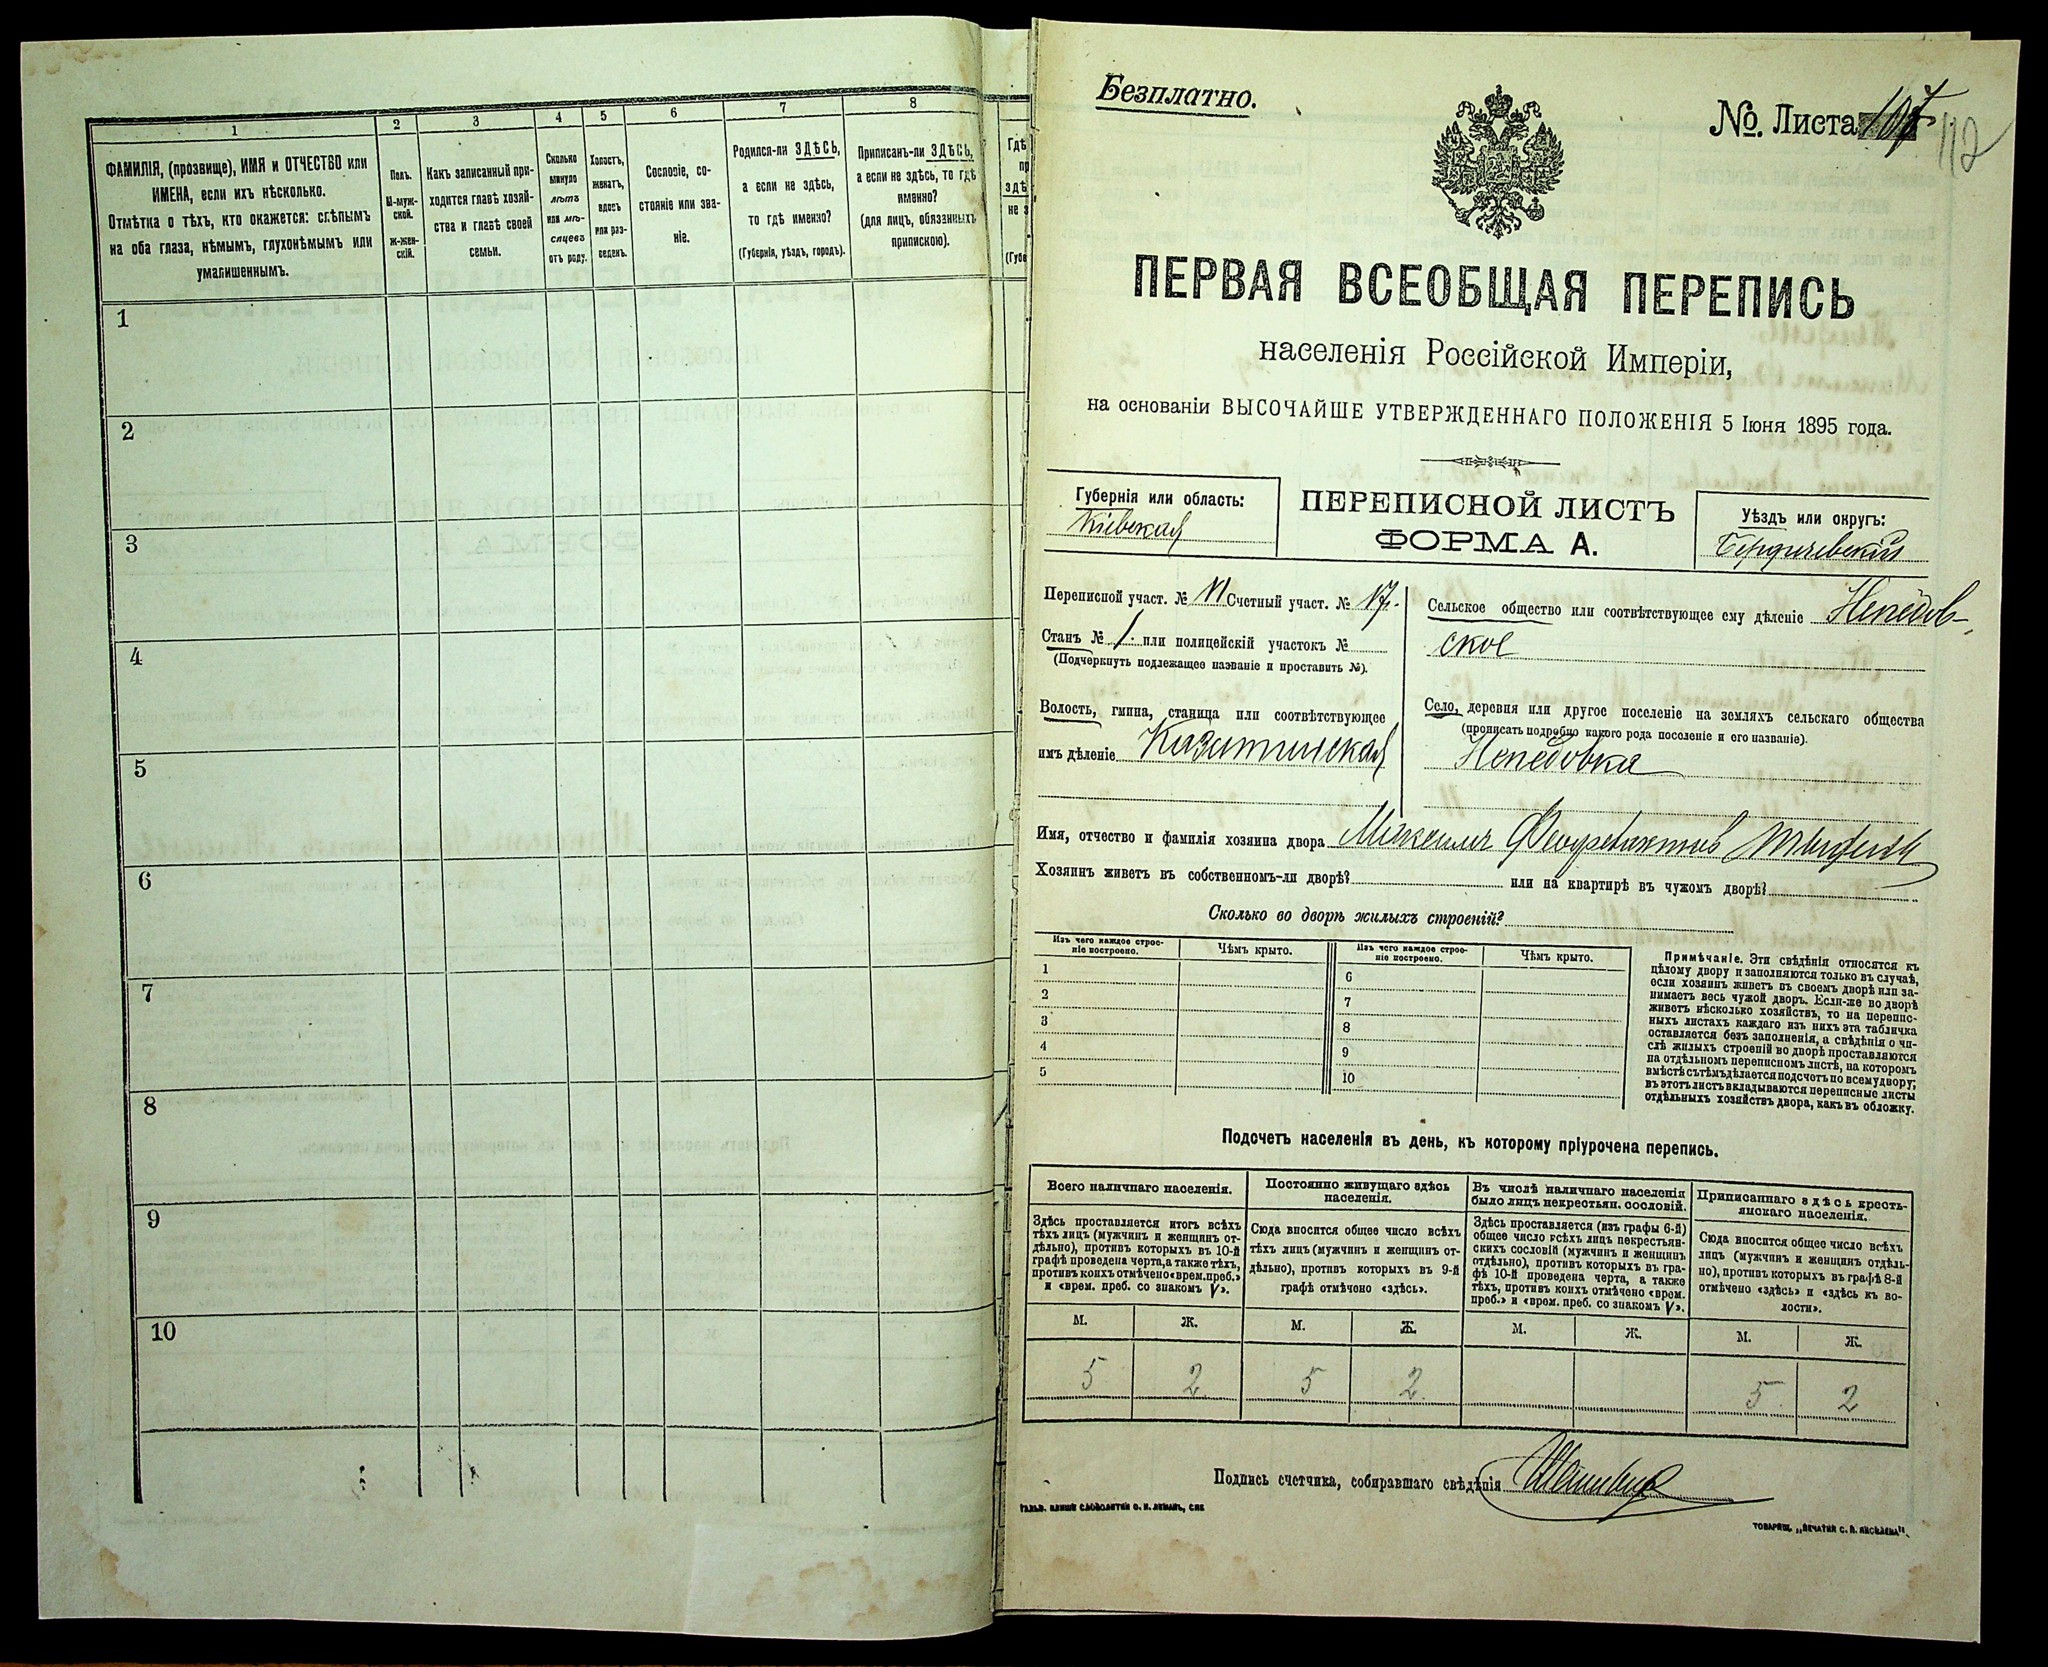 1
2
3
4
5
6
7
8
ФАМИЛІЯ, (прозвище), ИМЯ и ОТЧЕСТВО или
ИМЕНА, если ихъ нѣсколько.
Отмѣтка о тѣхъ, кто окажется: слѣпымъ
на оба глаза, нѣмымъ, глухонѣмымъ или
умалишеннымъ.
Полъ.
М-муж-
ской.
ж-жен-
скій.
Какъ записанный при-
ходится главѣ хозяй-
ства и главѣ своей
семьи.
Сколько
минуло
лѣтъ
или мѣ-
сяцевъ
отъ роду.
Холостъ,
женатъ,
вдовъ
или раз-
веденъ.
Сословіе, со-
стояніе или зва-
ніе.
Родился-ли ЗДѢСЬ,
а если не здѣсь,
то гдѣ именно?
(Губернія, уѣздъ, городъ).
Приписанъ-ли ЗДѢСЬ,
а если не здѣсь, то гдѣ
именно?
(для лицъ, обязанныхъ
припискою).
Гдѣ
пр
здѣ
не з
(Губе
1
2
3
4
5
6
7
8
9
10
Безплатно.
№. Листа 107
112
ПЕРВАЯ ВСЕОБЩАЯ ПЕРЕПИСЬ
населенія Россійской Имперіи,
на основаніи ВЫСОЧАЙШЕ УТВЕРЖДЕННАГО ПОЛОЖЕНІЯ 5 Іюня 1895 года.
Губернія или область:
Кіевская
ПЕРЕПИСНОЙ ЛИСТЪ
ФОРМА А.
Уѣздъ или округъ:
Бердичевскій
Переписной участ. № VI Счетный участ. №
Станъ № 1. или полицейскій участокъ №
(Подчеркнуть подлежащее названіе и проставить №).
Волость, гмина, станица или соотвѣтствующее
имъ дѣленіе Казатинская
Сельское общество или соотвѣтствующее ему дѣленіе Непедов-
ское
Село, деревня или другое поселеніе на земляхъ сельскаго общества
(прописать подробно какого рода поселеніе и его названіе).
Непедовка
Имя, отчество и фамилія хозяина двора Максимъ
Хозяинъ живетъ въ собственномъ-ли дворѣ? или на квартирѣ въ чужомъ дворѣ?
Сколько во дворѣ жилыхъ строеній?
Изъ чего каждое строе-
ніе построено.
Чѣмъ крыто.
Изъ чего каждое строе-
ніе построено.
Чѣмъ крыто.
1
2
3
4
5
6
7
8
9
10
Примѣчаніе. Эти свѣдѣнія относятся къ
цѣлому двору и заполняются только въ случаѣ,
если хозяинъ живетъ въ своемъ дворѣ или за-
нимаетъ весь чужой дворъ. Если-же во дворѣ
живетъ нѣсколько хозяйствъ, то на перепис-
ныхъ листахъ каждаго изъ нихъ эта табличка
оставляется безъ заполненія, а свѣдѣнія о чи-
слѣ жилыхъ строеній во дворѣ проставляются
на отдѣльномъ переписномъ листѣ, на которомъ
вмѣстѣ съ тѣмъ дѣлается подсчетъ по всему двору;
въ этотъ листъ вкладываются переписные листы
отдѣльныхъ хозяйствъ двора, какъ въ обложку.
Подсчетъ населенія въ день, къ которому пріурочена перепись.
Всего наличнаго населенія.
Здѣсь проставляется итогъ всѣхъ
тѣхъ лицъ (мужчинъ и женщинъ от-
дѣльно), противъ которыхъ въ 10-й
графѣ проведена черта, а также тѣхъ,
противъ коихъ отмѣчено «врем. преб.»
и «врем. преб. со знакомъ V».
Постоянно живущаго здѣсь
населенія.
Сюда вносится общее число всѣхъ
тѣхъ лицъ (мужчинъ и женщинъ от-
дѣльно), противъ которыхъ въ 9-й
графѣ отмѣчено «здѣсь».
Въ числѣ наличнаго населенія
было лицъ некрестьян. сословій.
Здѣсь проставляется (изъ графы 6-й)
общее число всѣхъ лицъ некрестьян-
скихъ сословій (мужчинъ и женщинъ
отдѣльно), противъ которыхъ въ гра-
фѣ 10-й проведена черта, а также
тѣхъ, противъ коихъ отмѣчено «врем.
преб.» и «врем. преб. со знакомъ V».
Приписаннаго здѣсь кресть-
янскаго населенія.
Сюда вносится общее число всѣхъ
лицъ (мужчинъ и женщинъ отдѣль-
но), противъ которыхъ въ графѣ 8-й
отмѣчено «здѣсь» и «здѣсь къ во-
лости».
М. Ж. М. Ж. М. Ж. М. Ж.
5 2 5 2 5 2
Подпись счетчика, собиравшаго свѣдѣнія
ГАЛЬВ. КЛИШЕ СЛОВОЛИТНИ О. И. ЛЕМАНЪ, СПБ
ТОВАРИЩ. „ПЕЧАТНИ С. П. ЯКОВЛЕВА".